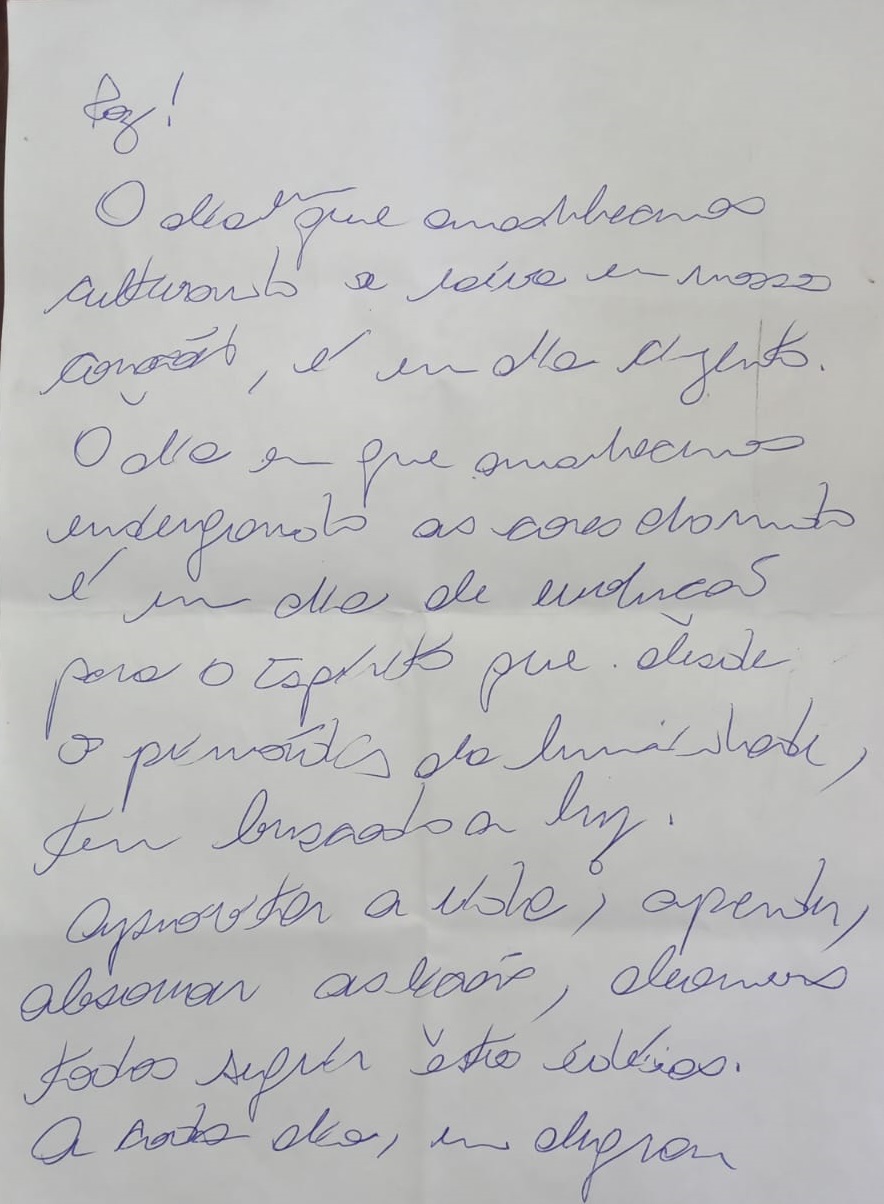 Paz!
O dia em que amanhecemos
cultivando a raiva em nosso
coração, é um dia cinzento.
O dia em que amanhecemos
enxergando as cores do mundo
é um dia de evolução
para o Espírito que desde
o primórdios da humanidade,
tem buscado a luz.
Aproveitar a vida, aprender,
absorver as lições, devemos
todos seguir estas idéias.
A cada dia, um degrau